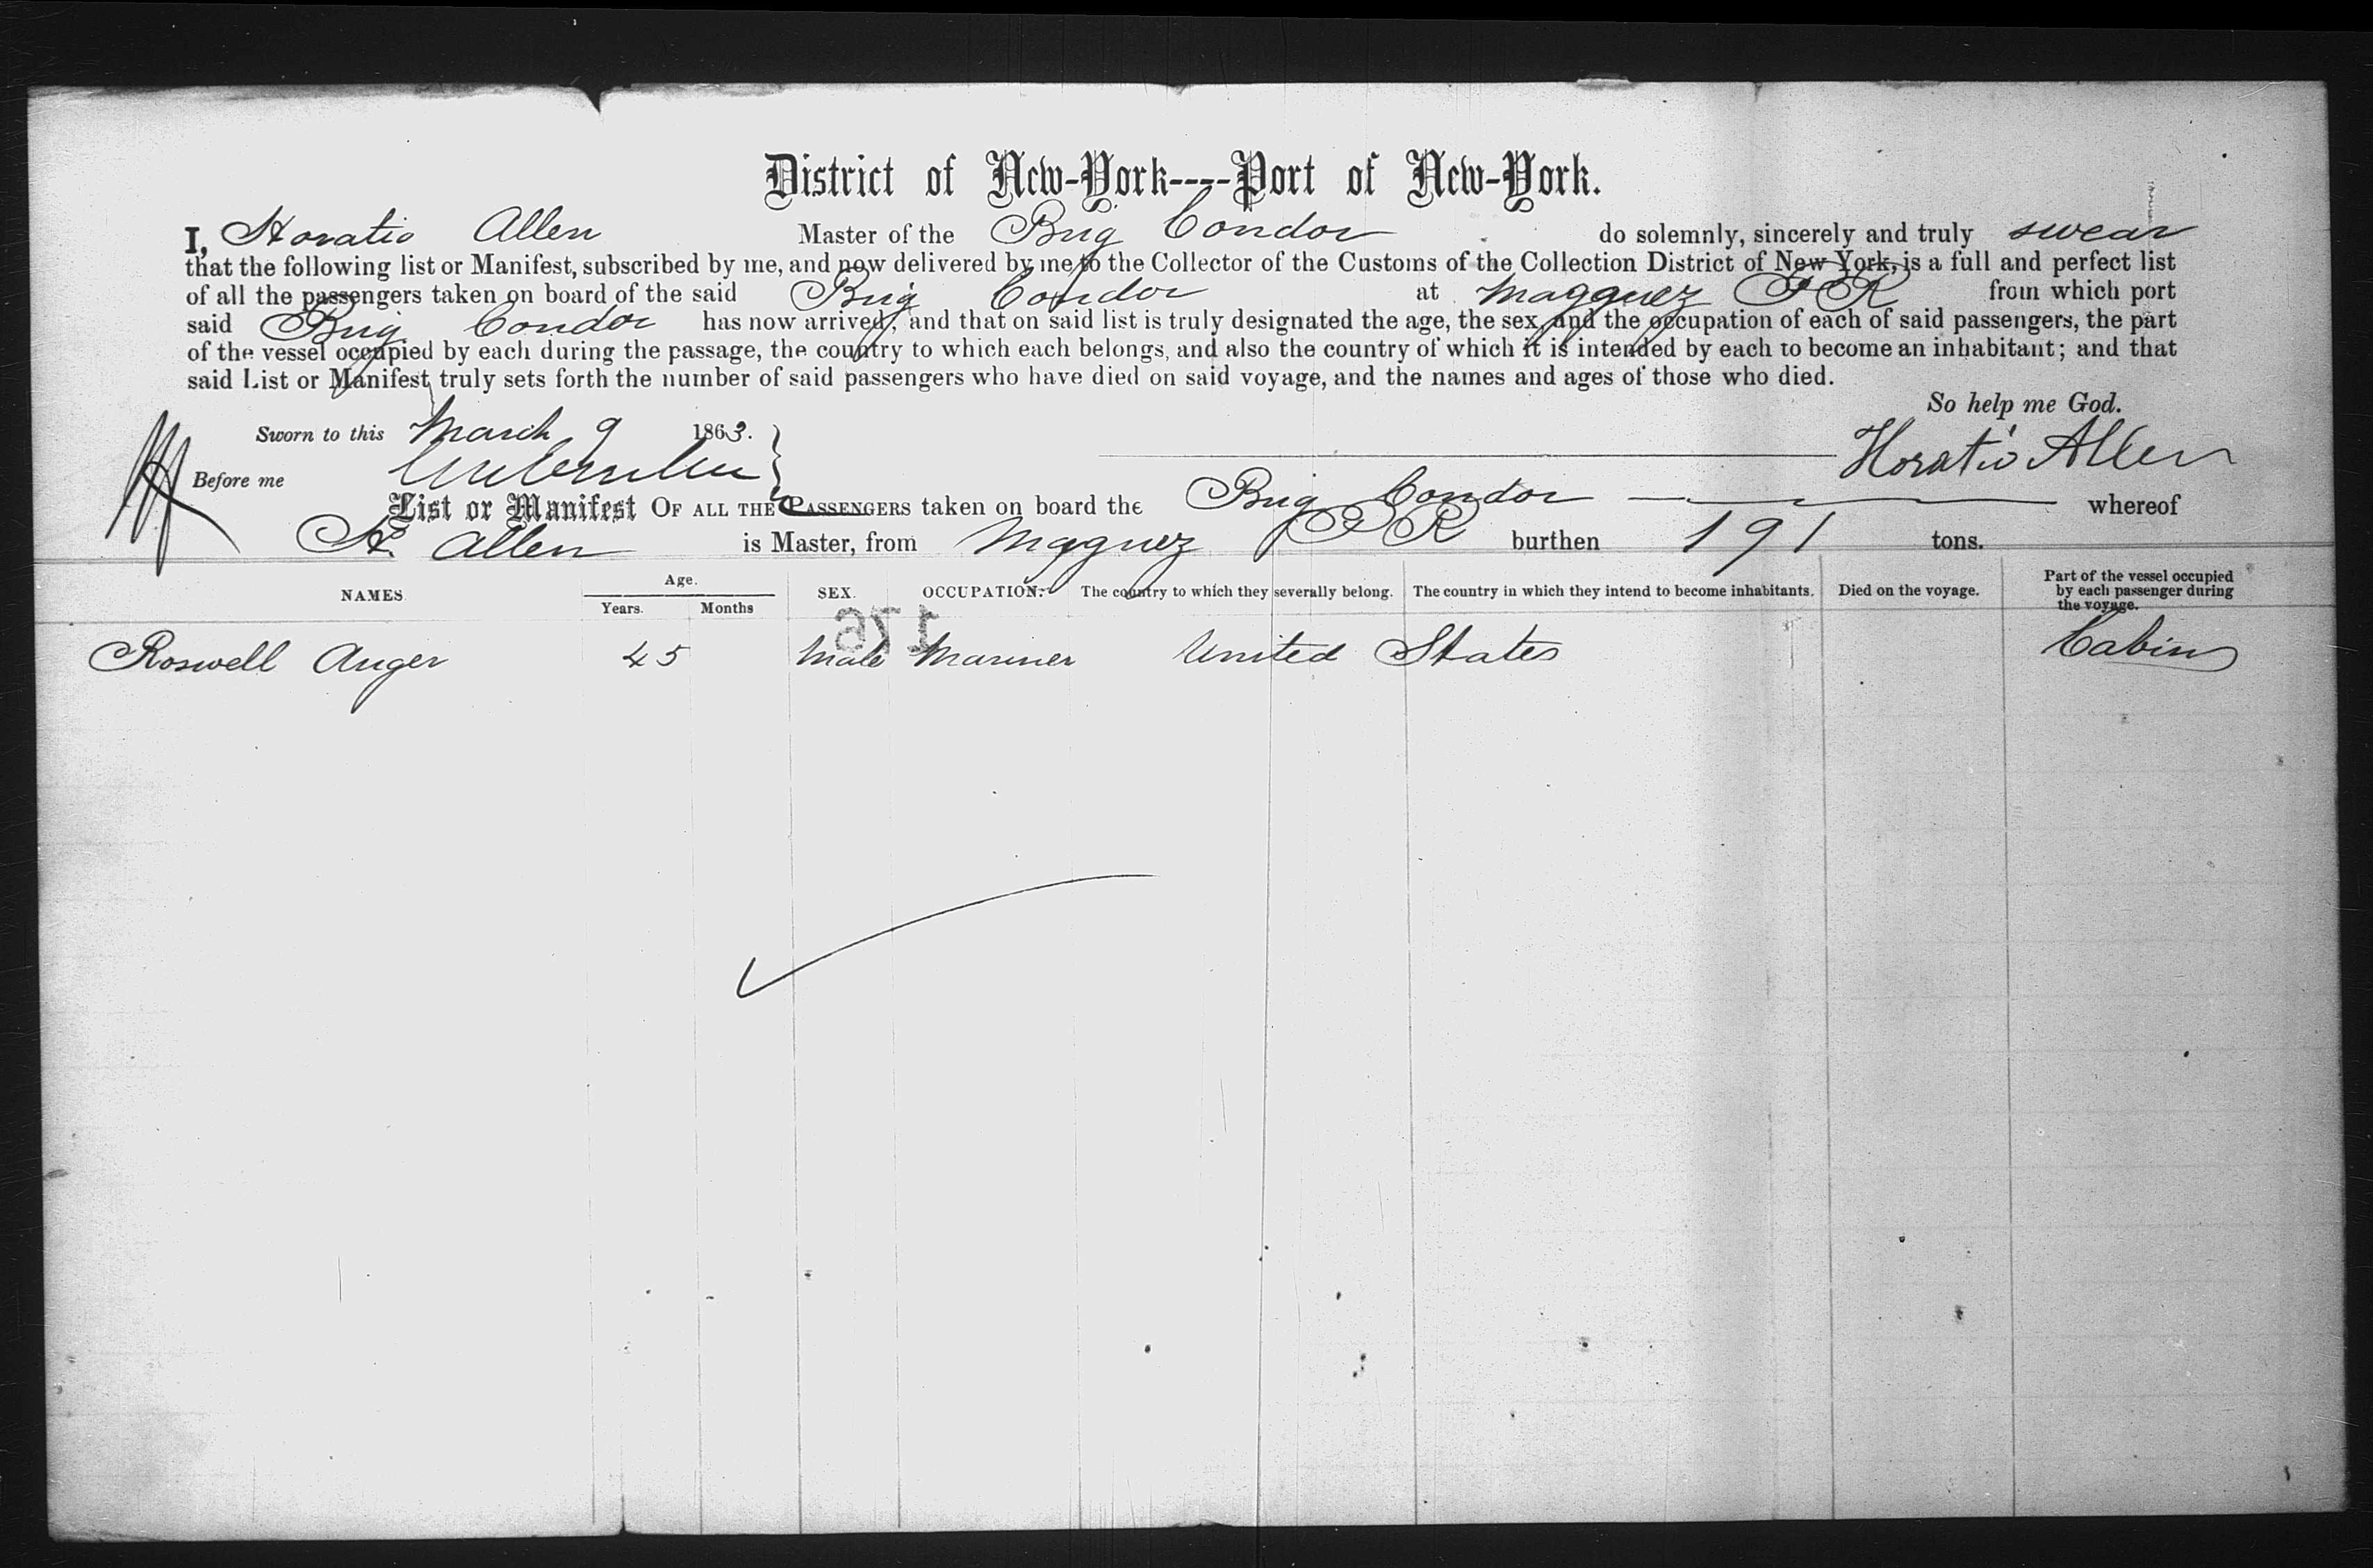 District of New-York----Port of New-York.
I, Horatio Allen Master of the Brig Condor do solemnly, sincerely and truly swear
that the following list or Manifest, subscribed by me, and now delivered by me to the Collector of the Customs of the Collection District of New York, is a full and perfect list
of all the passengers taken on board of the said Brig Condor at Mayguez P R from which port
said Brig Condor has now arrived; and that on said list is truly designated the age, the sex, and the occupation of each of said passengers, the part
of the vessel occupied by each during the passage, the country to which each belongs, and also the country of which it is intended by each to become an inhabitant; and that
said List or Manifest truly sets forth the number of said passengers who have died on said voyage, and the names and ages of those who died.
So help me God.
Sworn to this March 9 1863.
Horatio Allen
Before me
List or Manifest OF ALL THE PASSENGERS taken on board the Brig Condor whereof
H. Allen is Master, from Mayguez P R burthen 191 tons.
NAMES Age. Years. Months SEX. OCCUPATION. The country to which they severally belong. The country in which they intend to become inhabitants. Died on the voyage. Part of the vessel occupied by each passenger during the voyage.
176
Roswell Auger 45 Male Mariner United States Cabin